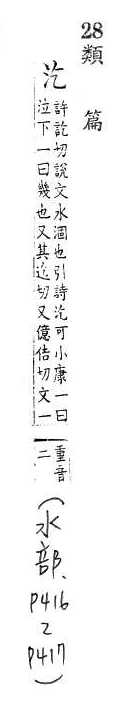 28類篇
汔
許訖切說文水涸也引詩汔可小康一曰
泣下一曰幾也又其迄切又億佶切文一
重音
二
(水部、P416 2 P417)